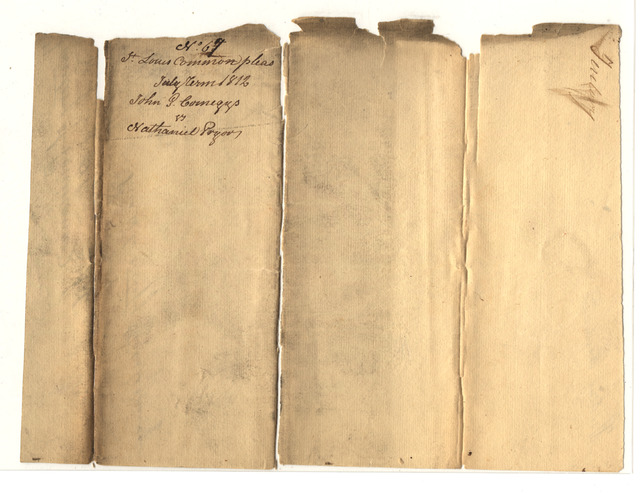 No. 67
St. Louis Common pleas
July Term 1812
John G. Comegys
vs
Nathaniel Pryor